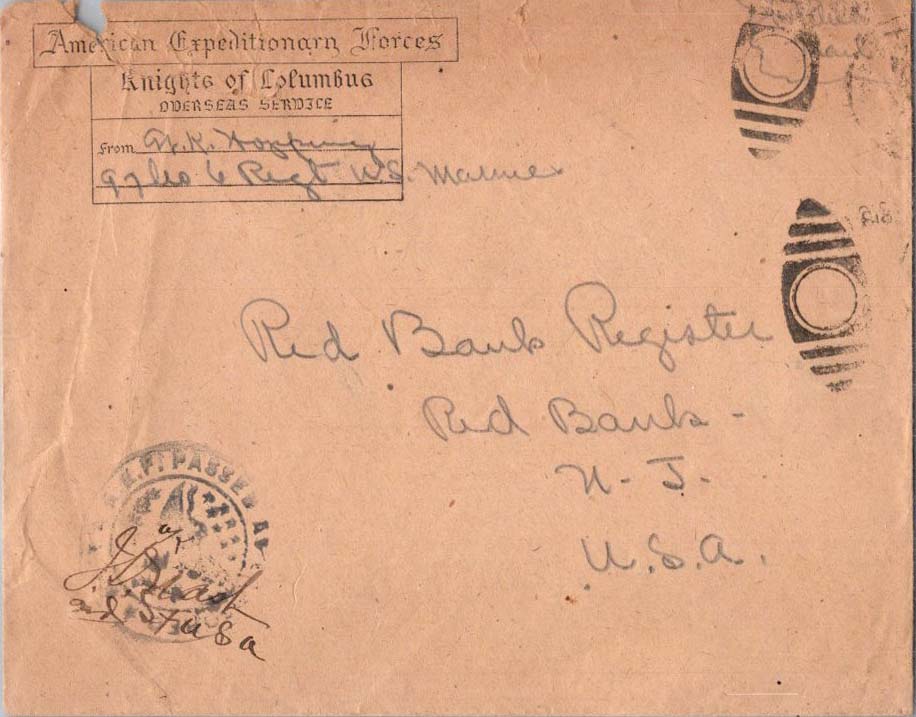 American Expeditionary Forces
Knights of Columbus
OVERSEAS SERVICE
From W.K. Hopping
97 Co 6 Regt U.S. Marines
Red Bank Register
Red Bank -
N. J.
U.S.A.
A.E.F. PASSED